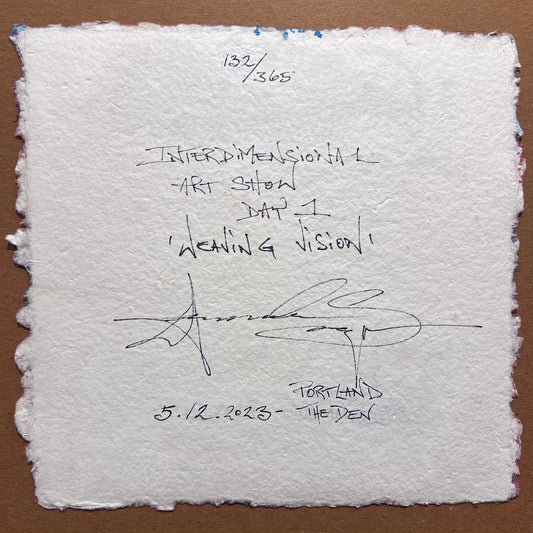 132/365
INTERDIMENSIONAL
ART SHOW
DAY 1
'WEAVING VISION'
PORTLAND
5.12.2023- THE DEN